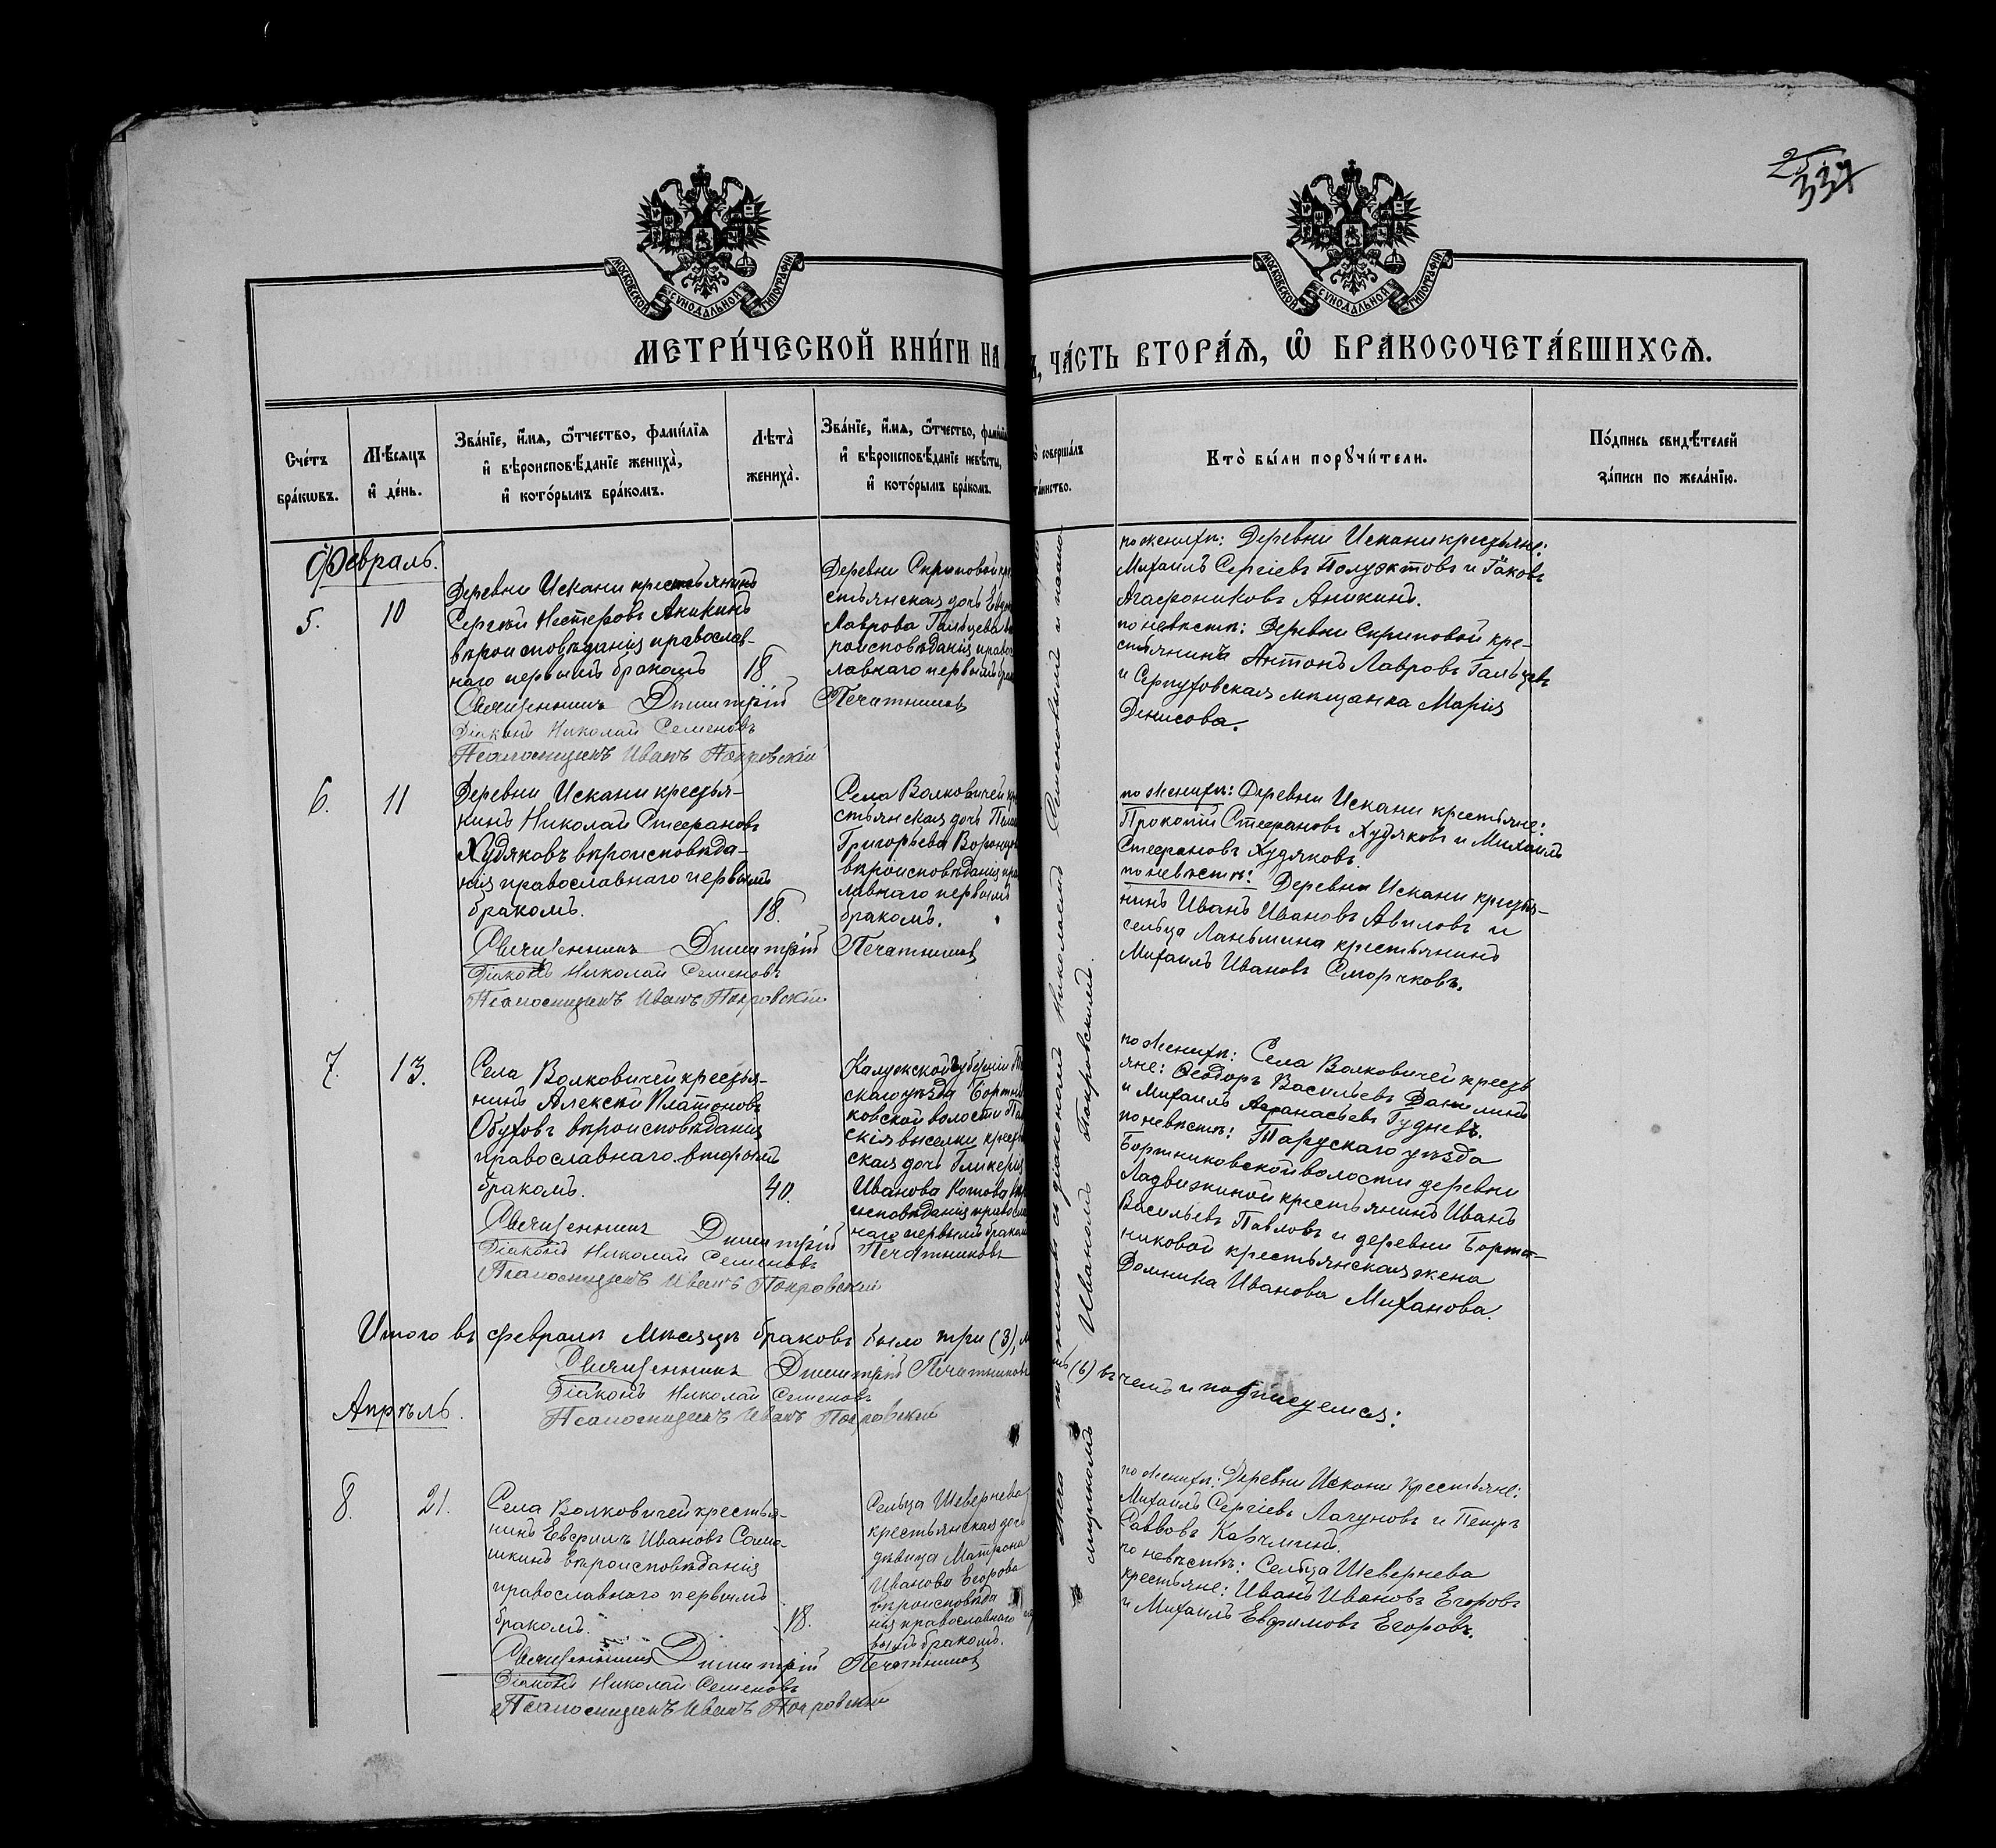 25
337
МОСКОВСКОЙ СУНОДАЛЬНОЙ ТИПОГРАФІИ
МОСКОВСКОЙ СУНОДАЛЬНОЙ ТИПОГРАФІИ
МЕТРИ́ЧЕСКОЙ КНИ́ГИ НА
ЧА́СТЬ ВТОРА́Я, Ѡ БРАКОСОЧЕТА́ВШИХСЯ.
Сче́тъ
бра́кѡвъ.
Мѣ́сяцъ
и҆ де́нь.
Зва́нїе, и҆́мя, ѻ҆́тчество, фами́лїя
и҆ вѣроисповѣ́данїе жениха̀,
и҆ кото́рымъ бра́комъ.
Лѣта̀
жениха̀.
Зва́нїе, и҆́мя, ѻ҆́тчество,
и҆ вѣроисповѣ́данїе невѣ́сты,
и҆ кото́рымъ бра́комъ.
соверша́лъ
Кто̀ бы́ли порꙋчи́тели.
По́дпись свидѣ́телей
за́писи по жела́нїю.
Февраль.
5.
10
Деревни Искани крестьянинъ
Сергѣй Нестеровъ Аникинъ
вѣроисповѣданія православ-
наго первымъ бракомъ
18
Священникъ Димитрій Печатниковъ
Діаконъ Николай Семеновъ
Псаломщикъ Иванъ Покровскій
Деревни Скрыповой
стьянская дочь
Лаврова Гальцева
роисповѣданія
лавнаго первымъ
по женихѣ: Деревни Искани крестьяне:
Михаилъ Сергіевъ Полуэктовъ и Іаковъ
Агафониковъ Аникинъ.
по невѣстѣ: Деревни Скрыповой кре-
стьянинъ Антонъ Лавровъ Гальцевъ
и Серпуховская мѣщанка Марія
Денисова.
6.
11
Деревни Искани крестья-
нинъ Николай Стефановъ
Худяковъ вѣроисповѣда-
нія православнаго первымъ
бракомъ.
18.
Священникъ Димитрій Печатниковъ
Діаконъ Николай Семеновъ
Псаломщикъ Иванъ Покровскій
Села Волковичей
стьянская дочь
Григорьева
вѣроисповѣданія
лавнаго первымъ
бракомъ.
по женихѣ: Деревни Искани крестьяне:
Прокопій Стефановъ Худяковъ и Михаилъ
Стефановъ Худяковъ.
по невѣстѣ: Деревни Искани крестья-
нинъ Иванъ Ивановъ Авиловъ и
сельца Ланьшина крестьянинъ
Михаилъ Ивановъ Сморчковъ.
7.
13.
Села Волковичей крестья-
нинъ Алексѣй Платоновъ
Обуховъ вѣроисповѣданія
православнаго вторымъ
бракомъ.
40.
Священникъ Димитрій Печатниковъ
Діаконъ Николай Семеновъ
Псаломщикъ Иванъ Покровскій
Калужской губерніи
скаго уѣзда
ковской волости
скія выселки
ская дочь Гликерія
Иванова Котова
исповѣданія
наго первымъ
по женихѣ: Села Волковичей кресть
яне: Ѳеодоръ Васильевъ Данилинъ
и Михаилъ Афанасьевъ Гудневъ.
по невѣстѣ: Тарускаго уѣзда
Бортниковской волости деревни
Ладыжиной крестьянинъ Иванъ
Васильевъ Павловъ и деревни Бортн-
никовой крестьянская жена
Домника Иванова Миханова.
Итого въ февралѣ мѣсяцѣ браковъ было три (3),
(6) въ чемъ и подписуемся:
Священникъ Димитрій Печатниковъ
Діаконъ Николай Семеновъ
Псаломщикъ Иванъ Покровскій
Апрѣль.
8.
21.
Села Волковичей крестья-
нинъ Евфимъ Ивановъ Сама-
шкинъ вѣроисповѣданія
православнаго первымъ
бракомъ.
18.
Священникъ Димитрій Печатниковъ
Діаконъ Николай Семеновъ
Псаломщикъ Иванъ Покровскій
Сельца Шевернева
крестьянская дочь
дѣвица Матрона
Иванова Егорова
вѣроисповѣда
нія православнаго
вымъ бракомъ.
Николаемъ Семеновымъ и псало-
мщикомъ Иваномъ Покровскимъ.
по женихѣ: Деревни Искани крестьяне:
Михаилъ Сергіевъ Лагуновъ и Петръ
Савовъ Карчминъ.
по невѣстѣ: Сельца Шевернева
крестьяне: Иванъ Ивановъ Егоровъ
и Михаилъ Евфимовъ Егоровъ.